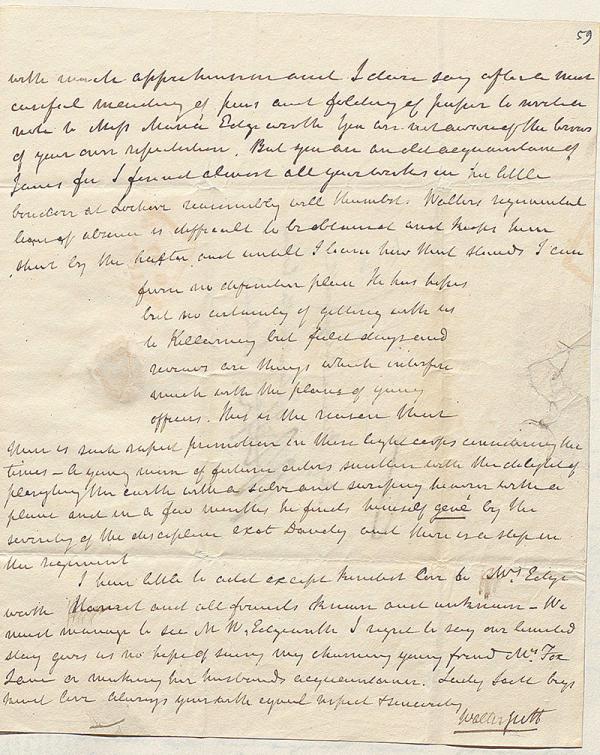 59
with much apprehension and I dare say after a most
careful mending of pens and folding of paper to write a
note to Miss Maria Edgeworth You are not aware of the terrors
of your own reputation. But you are an old acquaintance of
Janes for I found almost all your works in her little
at Lochore reasonably well thumbd. Walters regimental
leave of absence is difficult to be obtained and keeps him
short by the halter and untill I learn how that stands I can
form no definitive plan He has hopes
but no certainty of getting with us
to Killarney but field days and
reviews are things which interfere
much with the plans of young
officers. This is the reason that
there is such rapid promotion in these light corps considering the
times – A young man of fortune enters smitten with the delight of
ploughing the earth with a sabre and sweeping heaven with a
plume and in a few months he finds himself gené by the
severity of the discipline exit Dandy and there is a step in
the regiment
I have little to add except kindest love to Mrs. Edge
worth Harriet and all friends known and unknown – We
must manage to see Mr W. Edgeworth I regret to say our limited
stay gives us no hope of seeing my charming young friend Mrs. Fox
Lane or making her husbands acquaintance. Lady Scott begs
kind love always yours with equal respect & sincerity
Walter Scott